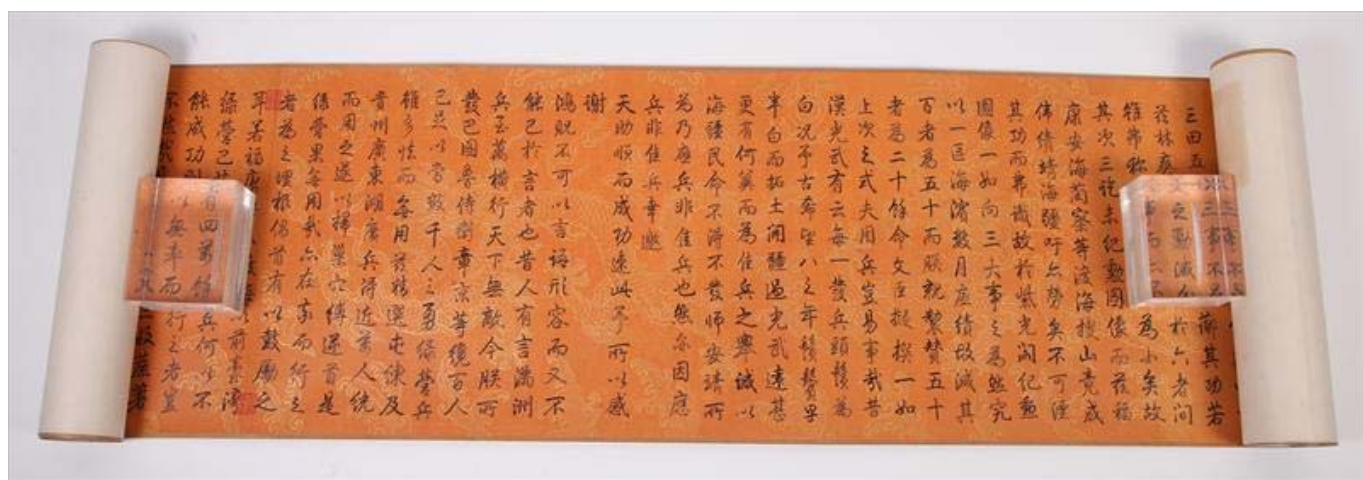 三四五
薊其功若
茲林爽文之勦滅介於六者間
雖弗稱大事而亦不為小矣故
其次三訖未紀勳圖像而茲福
康安海蘭察等渡海搜山竟成
偉績靖海疆吁亦勞矣不可湮
其功而弗識故於紫光閣紀勳
圖像一如向三大事之為然究
以一區海濱數月底績故減其
百者為五十而朕親製贊五十
者為二十餘命文臣擬撰一如
上次之式夫用兵豈易事哉昔
漢光武有云每一發兵頭鬚為
白況予古希望八之年鬚鬢早
半白而拓土開疆過光武遠甚
更有何冀而為佳兵之舉誠以
海疆民命不得不發師安靖所
為乃應兵非佳兵也然亦因應
兵非佳兵幸邀
天助順而成功速此予所以感
謝
鴻貺不可以言語形容而又不
能已於言者也昔人有言滿洲
兵至萬橫行天下無敵今朕所
發巴圖魯侍衛章京等纔百人
已足以當數千人之勇綠營兵
雖多怯而每用若精選屯練及
貴州廣東湖廣兵得近萬人統
而用之遂以掃巢穴縛逆首是
綠營果無用哉亦在率而行之
者為之埋根倡首有以鼓勵之
耳若福 前臺灣
綠營已 有四萬餘兵何以不
能成功則以無率而行之者豈
不然哉